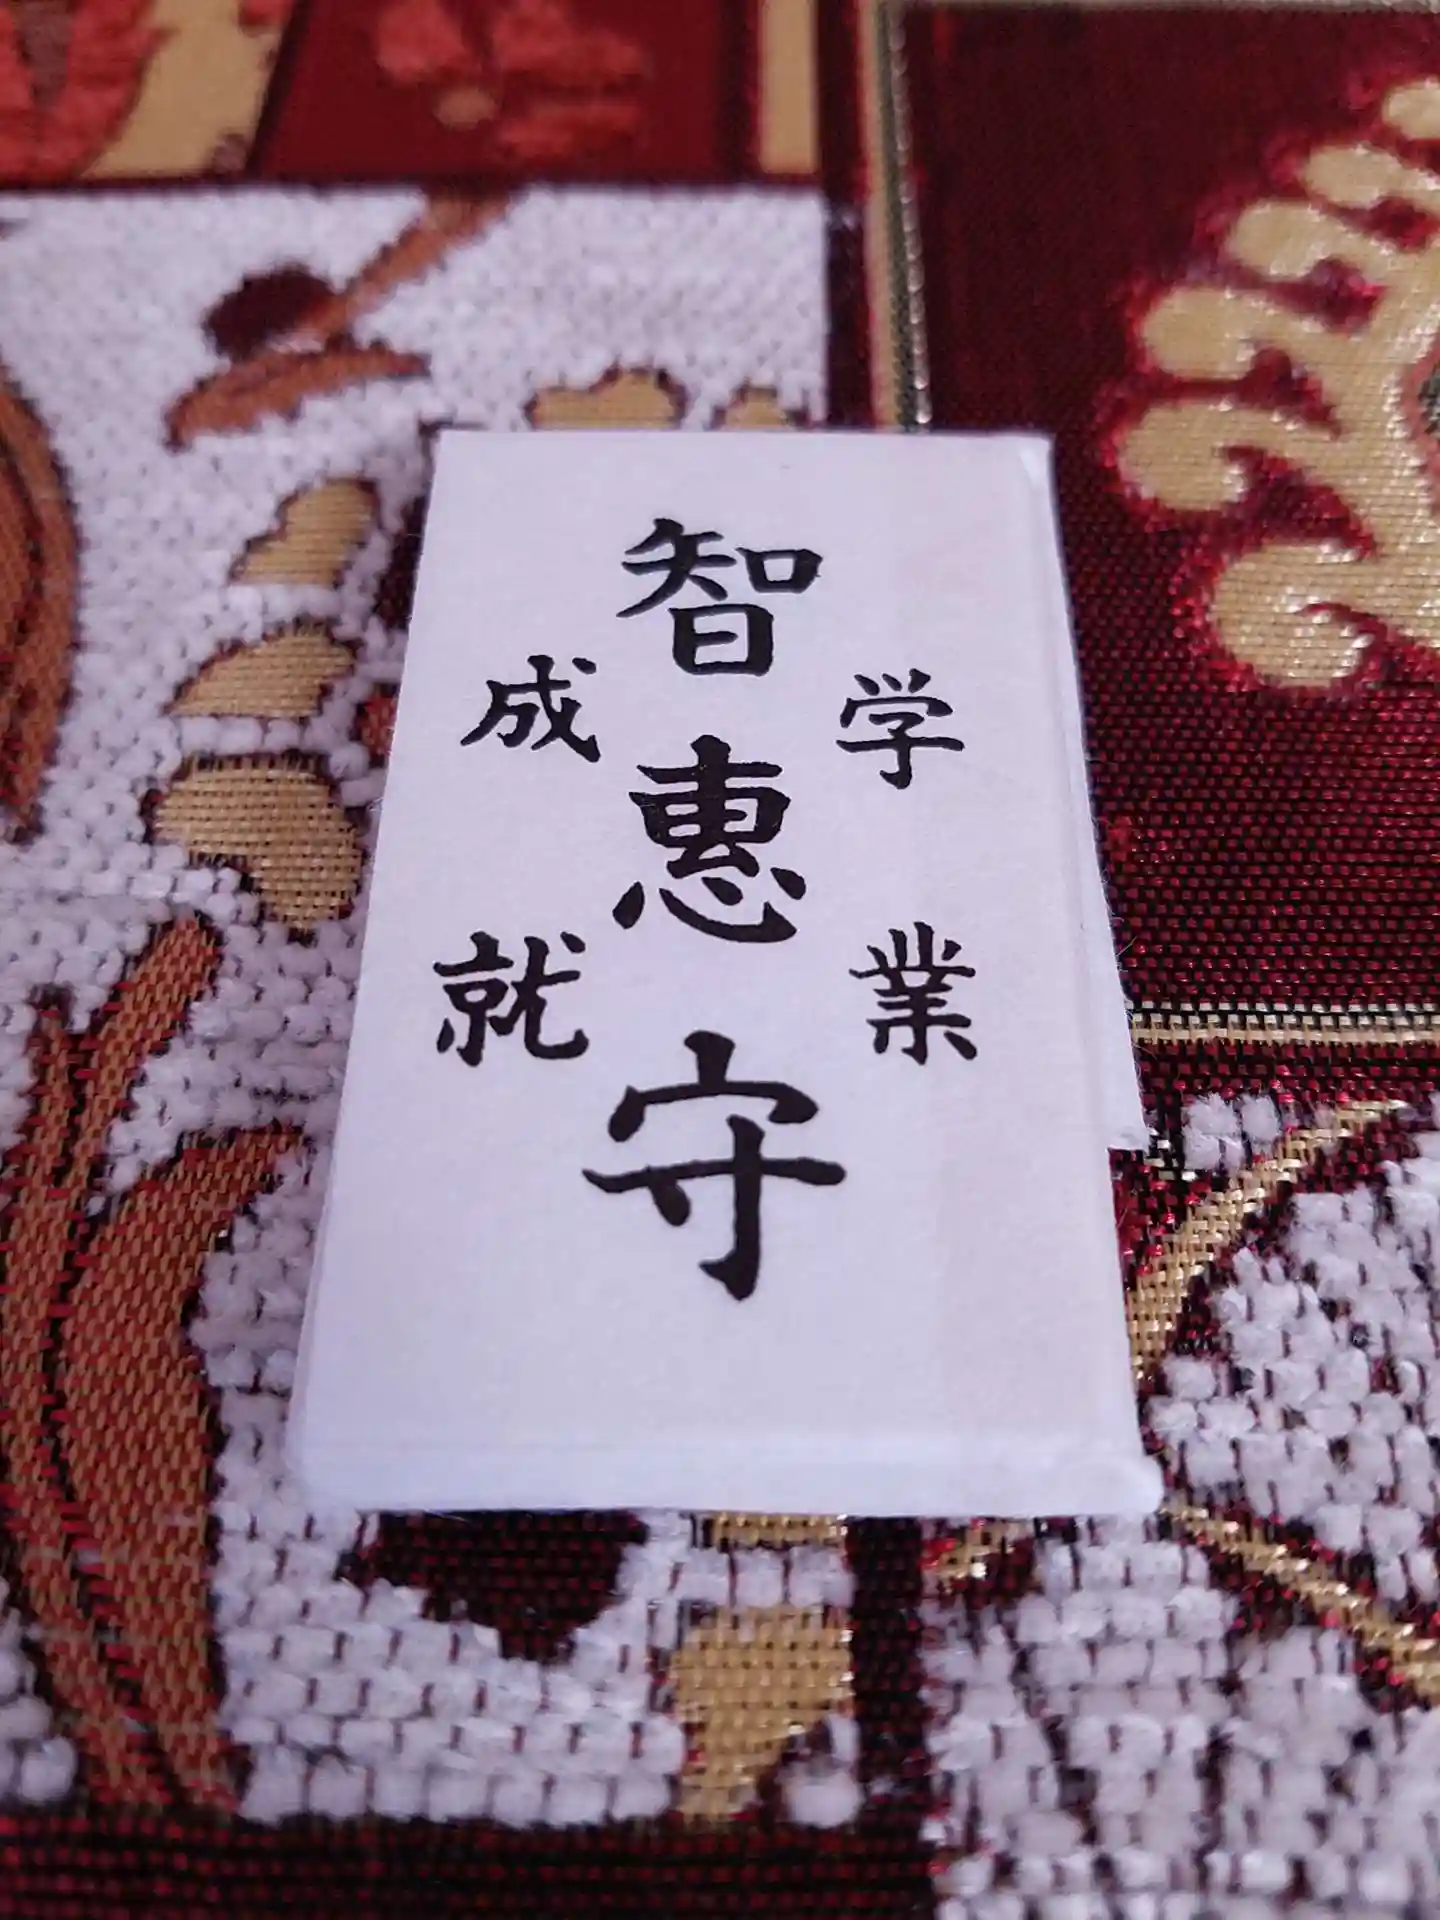 学業
智惠守
成就